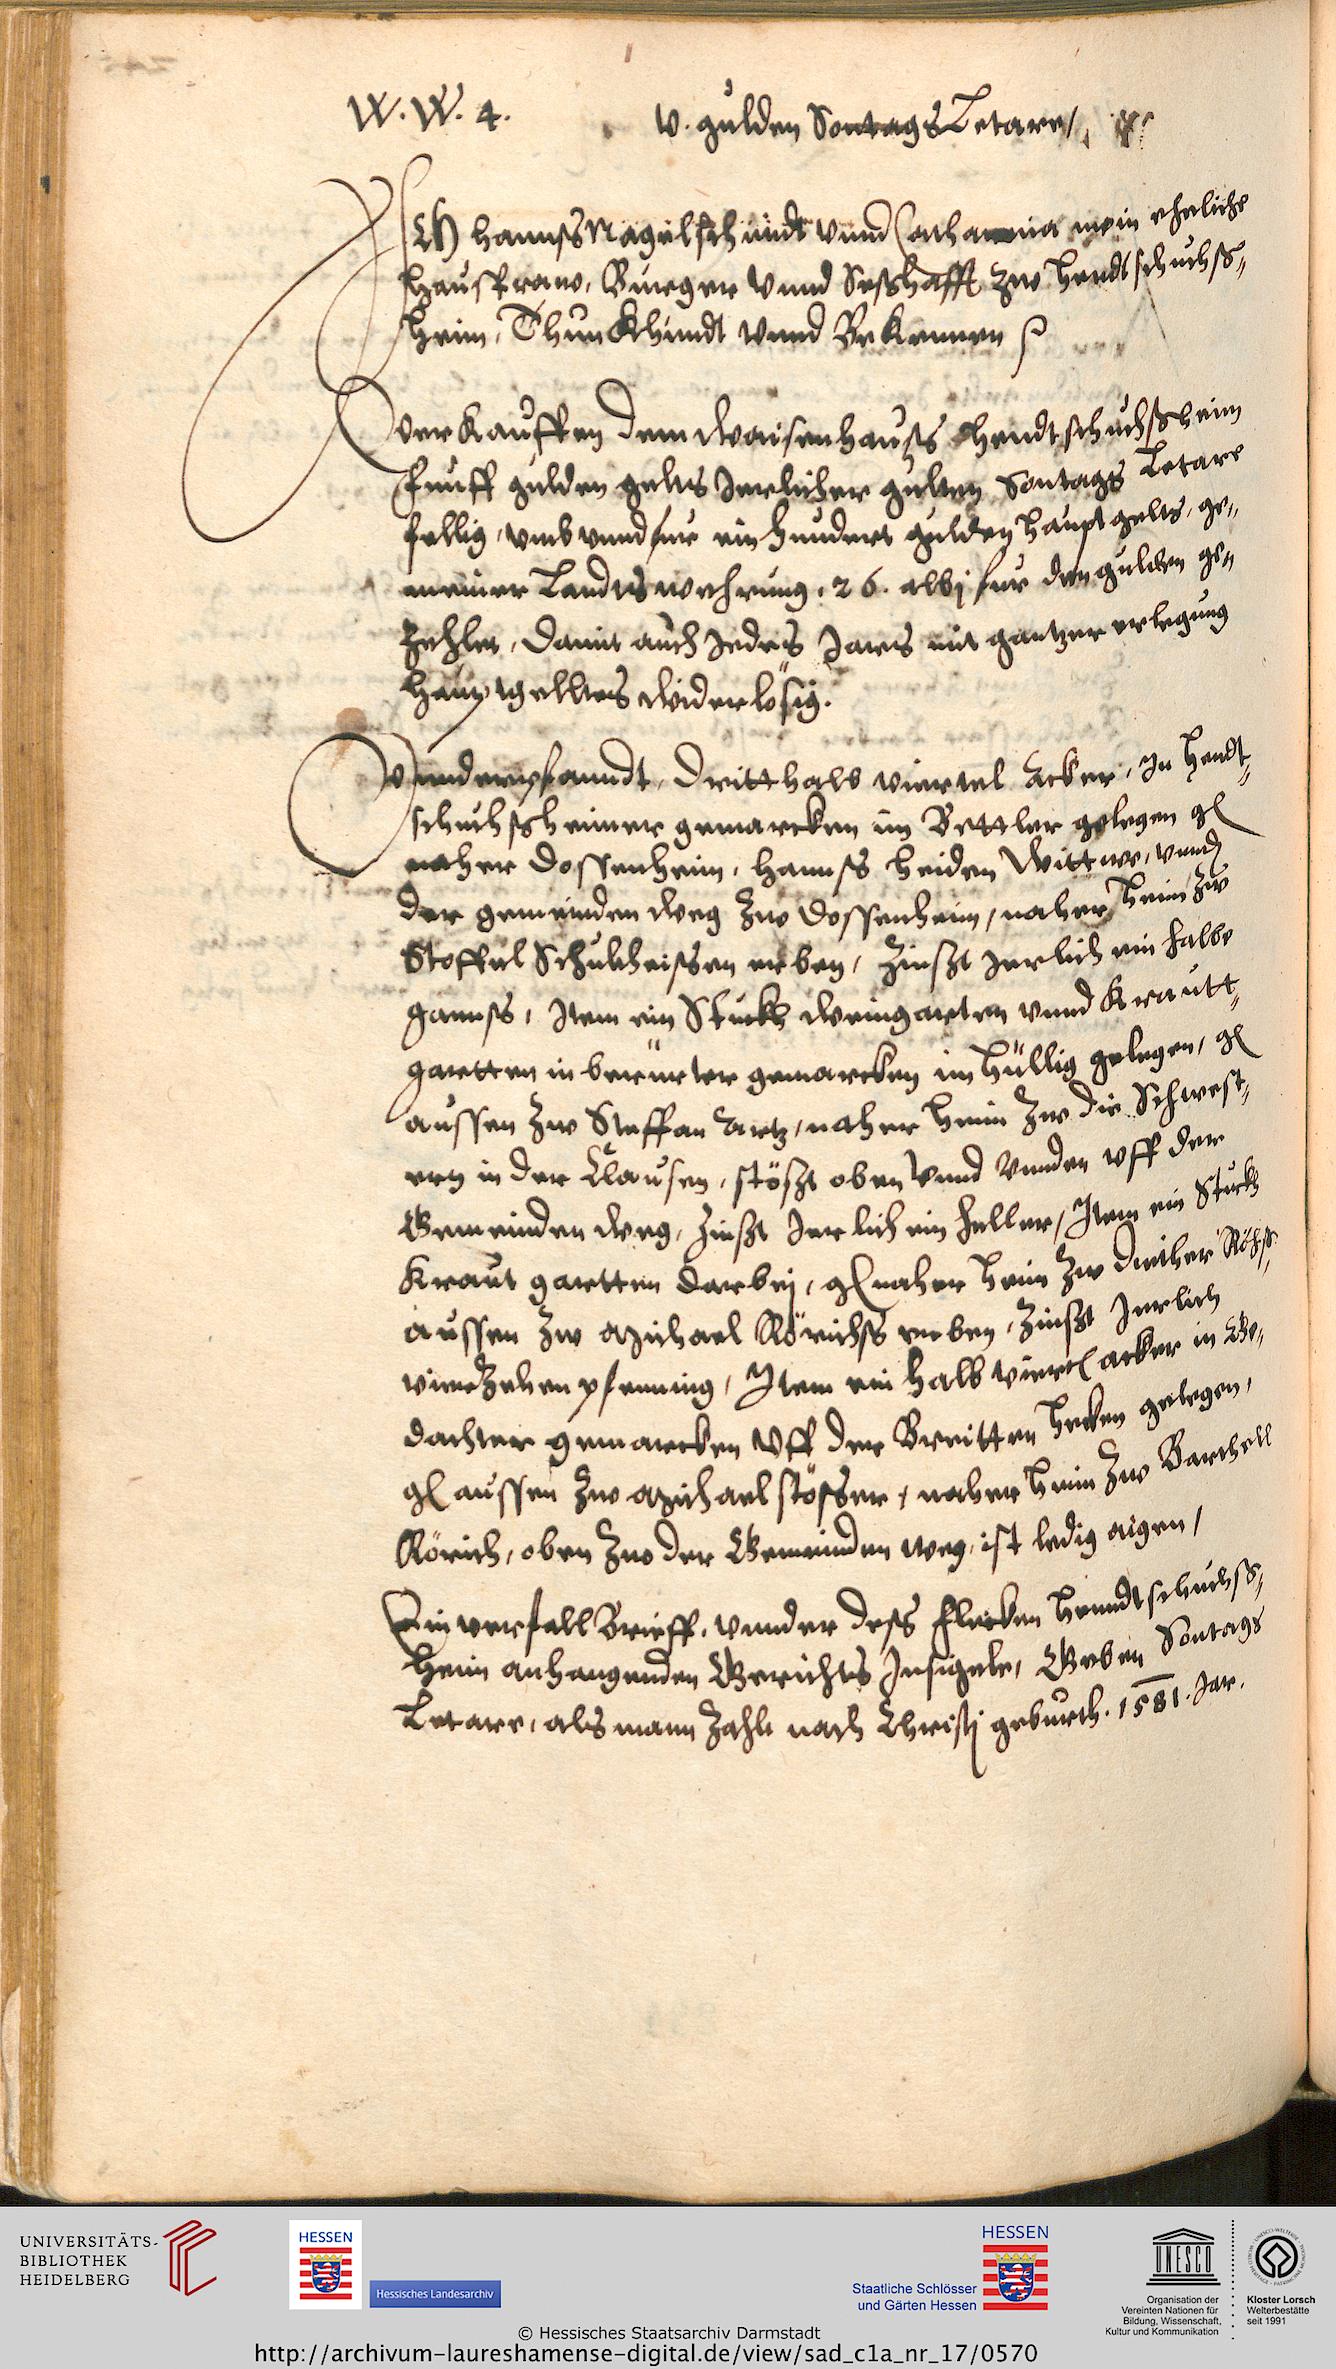 W. W. 4.
v. gulden Sontags Letare /
ICh Hannß Nagelschmidt vnnd Catharina mein eheliche
haußfraw, Burger vnnd Seßhafft zw Hendtschuchß,,
heim, Thun Khundt vnnd Bekennen
Verkauffen dem Waisenhauß Hendtschuchßheim
funff gulden gelts Jerlicher gulten Sontags Letare
fellig, vmb vnnd fur ein hundert gulden hauptgelts, ge,,
meiner Landtswehrung, 26. albj fur den gulden ge,,
zehlet, damit auch Jedes Jars mit gantzer erlegung
hauptgelltes widerlösig.
Vnnderpfanndt, dritthalb viertel Acker, In Hendt,,
schuchßheimer gemarcken im Bettler gelegen gl
naher Dossenheim, Hannß Heiden Wittwe, vnnd
der gemeinden weg zw Dossenheim, naher heim zw
Stoffel Schultheissen erben, zinßt Jerlich ein halbe
ganß, Item ein Stuckh weingarten vnnd Krautt,,
gartten in berürter gemarcken im Hüllig gelegen, gl
aussen zw Steffan Artz, naher heim zw die Schwest,,
ern in der Clausen, stößt oben vnnd vnnden vff der
Gemeinden weg, zinßt Jerlich ein heller, Item ein Stuckh
Kraut gartten darbej, gl naher heim zw Diether Röhß,,
aussen zw Michael Rörichß erben, zinßt Jerlich
vierzehen pfenning, Item ein halb viertl acker in Ge,,
dachter gemarcken vff der Breitten hecken gelegen,
gl aussen zw Michael stösser, naher heim zw Barthell
Rörich, oben zw der Gemeinden weg, ist ledig aigen,
Ein verfall Brieff, vnnder deß flecken Henndtschuchß,,
heim anhangenden Gerichts Insigele, Geben Sontags
Letare, als mann zahlt nach Christj geburth. 1581. Jar.
UNIVERSITÄTS-
BIBLIOTHEK
HEIDELBERG
HESSEN
Hessisches Landesarchiv
HESSEN
Staatliche Schlösser
und Gärten Hessen
UNESCO
Organisation der
Vereinten Nationen für
Bildung, Wissenschaft,
Kultur und Kommunikation
Kloster Lorsch
Welterbestätte
seit 1991
© Hessisches Staatsarchiv Darmstadt
http://archivum-laureshamense-digital.de/view/sad_c1a_nr_17/0570